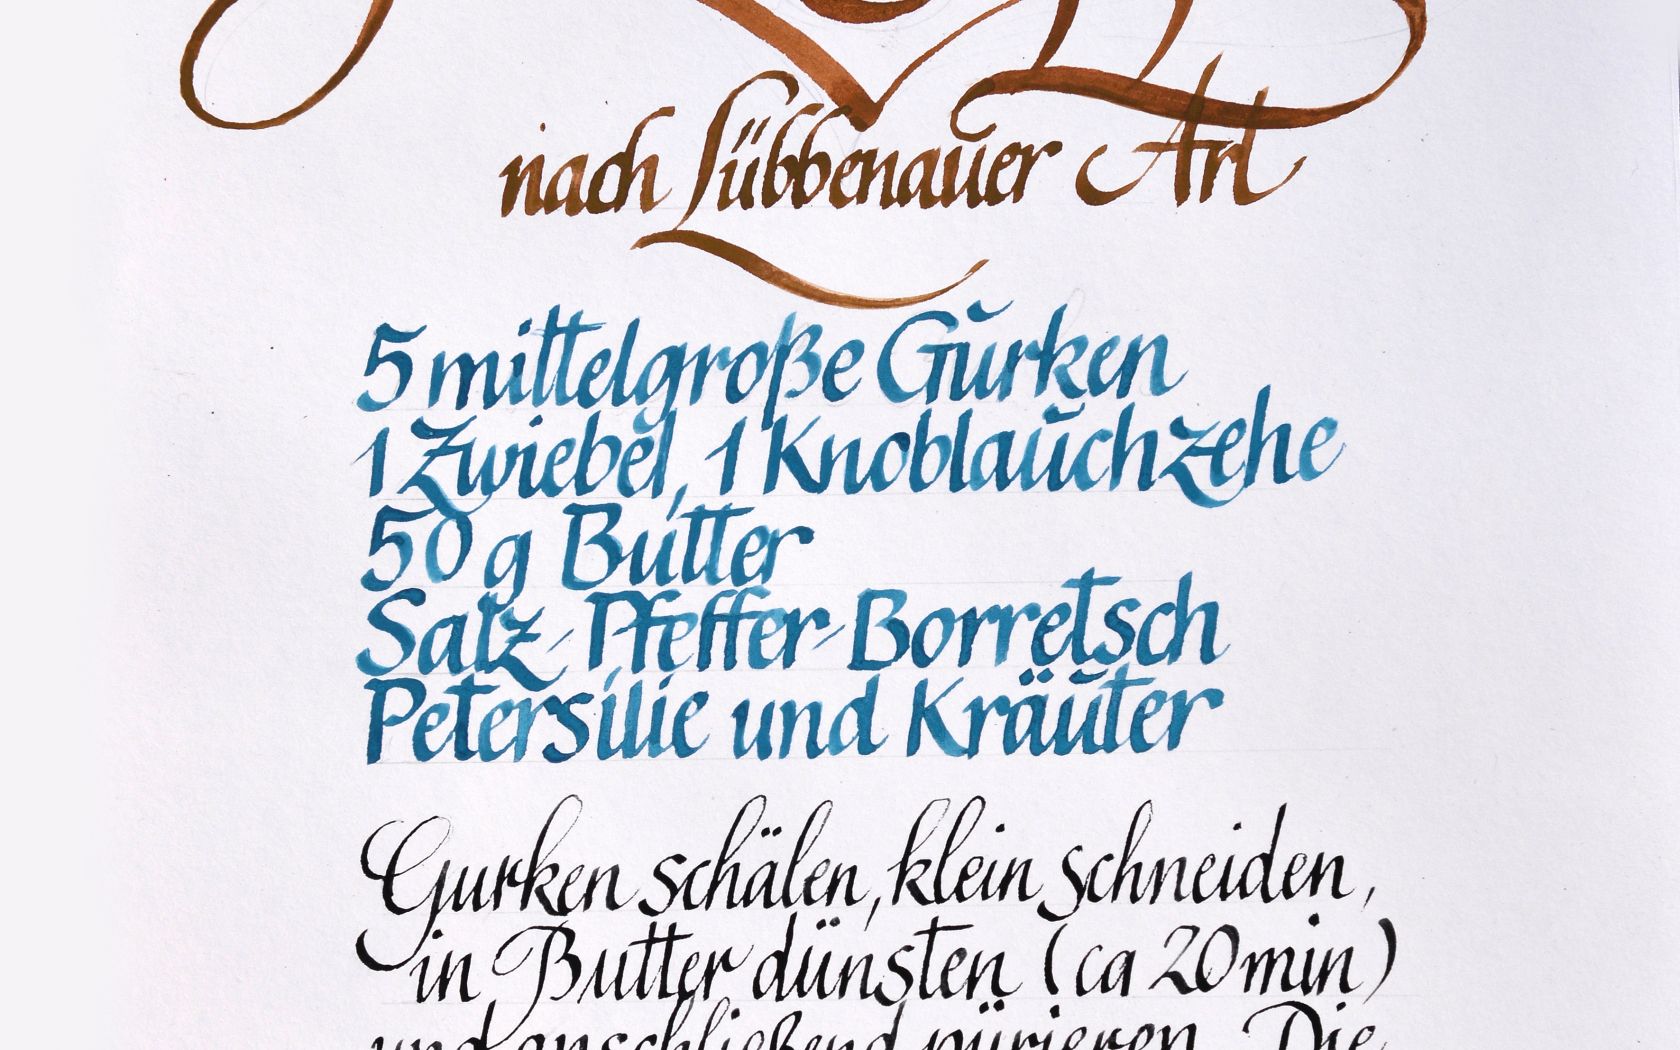 nach Lübbenauer Art
5 mittelgroße Gurken
1 Zwiebel, 1 Knoblauchzehe
50 g Butter
Salz-Pfeffer-Borretsch
Petersilie und Kräuter
Gurken schälen, klein schneiden,
in Butter dünsten (ca 20 min)
und anschließend pürieren. Die